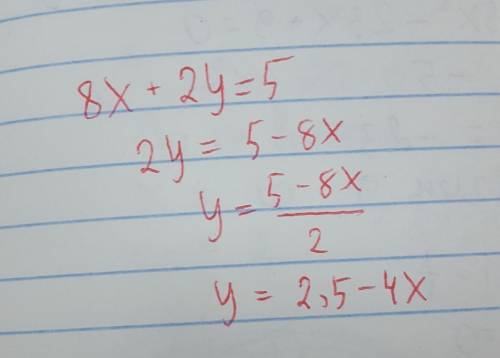 8x + 2y = 5
2y = 5 - 8x
y = \frac{5 - 8x}{2}
y = 2,5 - 4x